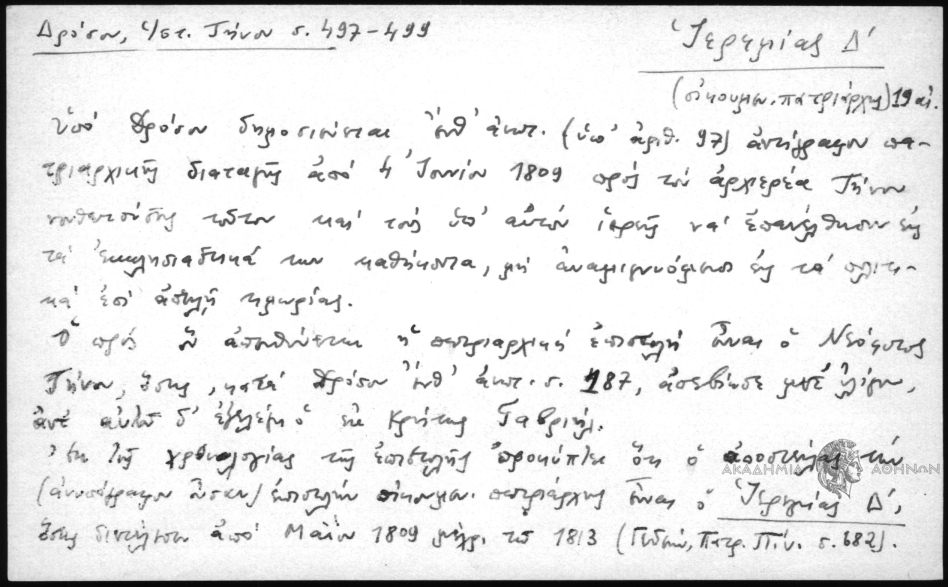 Δρόσου, Ἱστ. Τήνου σ. 497-499
Ἱερεμίας Δ΄
(οἰκουμεν. πατριάρχης) 19 αἰ.
Ὑπό Δρόσου δημοσιεύεται ἔνθ᾽ ἀνωτ. (ὑπ᾽ ἀριθ. 97) ἀντίγραφον πα-
τριαρχικῆς διαταγῆς ἀπό 4 Ἰουνίου 1809 πρός τόν ἀρχιερέα Τήνου
νουθετούσης τοῦτον καί τούς ὑπ᾽ αὐτόν ἱερεῖς νά ἐπανέλθουν εἰς
τά ἐκκλησιαστικά των καθήκοντα, μή ἀναμιγνυόμενοι εἰς τά πολιτι-
κά ἐπί ἀπειλῇ τιμωρίας.
Ὁ πρός ὅν ἀπευθύνεται ἡ πατριαρχική ἐπιστολή εἶναι ὁ Νεόφυτος
Τήνου, ὅστις, κατά Δρόσον ἔνθ᾽ ἀνωτ. σ. 187, ἀπεβίωσε μετ᾽ ὀλίγον,
ἀντ᾽ αὐτοῦ δ᾽ ἐξελέγη ὁ ἐκ Κρήτης Γαβριήλ.
Ἐκ τῆς χρονολογίας τῆς ἐπιστολῆς προκύπτει ὅτι ὁ ἀποστείλας τήν
(ἀνυπόγραφον οὖσαν) ἐπιστολήν οἰκουμεν. πατριάρχης εἶναι ὁ Ἱερεμίας Δ΄,
ὅστις διετέλεσεν ἀπό Μαΐου 1809 μέχρ. τοῦ 1813 (Γεδεών, Πατρ. Πίν. σ. 682).
ΑΚΑΔΗΜΙΑ ΑΘΗΝΩΝ